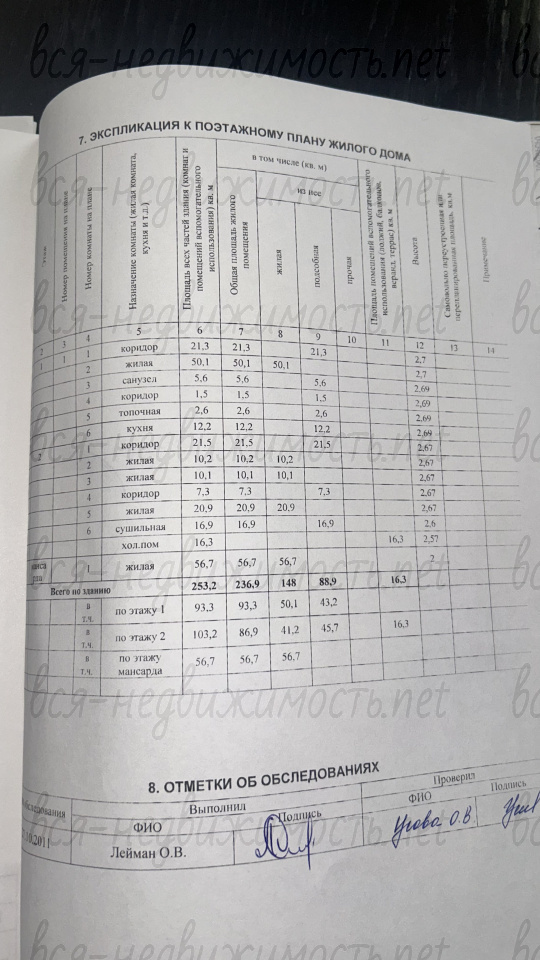 вся-недвижимость.net
7. ЭКСПЛИКАЦИЯ К ПОЭТАЖНОМУ ПЛАНУ ЖИЛОГО ДОМА
Этаж
Номер помещения на плане
Номер комнаты на плане
Назначение комнаты (жилая комната, кухня и т.д.)
Площадь всех частей здания (комнат и помещений вспомогательного использования) кв. м
в том числе (кв. м)
Общая площадь жилого помещения
из нее
жилая
подсобная
прочая
Площадь помещений вспомогательного использования (лоджий, балконов, веранд, террас) кв. м
Высота
Самовольно переустроенная или перепланированная площадь, кв.м
Примечание
2 3 4 5 6 7 8 9 10 11 12 13 14
1 1 1 коридор 21,3 21,3 21,3 2,7
2 жилая 50,1 50,1 50,1 2,7
3 санузел 5,6 5,6 5,6 2,69
4 коридор 1,5 1,5 1,5 2,69
5 топочная 2,6 2,6 2,6 2,69
6 кухня 12,2 12,2 12,2 2,69
2 1 коридор 21,5 21,5 21,5 2,67
2 жилая 10,2 10,2 10,2 2,67
3 жилая 10,1 10,1 10,1 2,67
4 коридор 7,3 7,3 7,3 2,67
5 жилая 20,9 20,9 20,9 2,67
6 сушильная 16,9 16,9 16,9 2,6
хол.пом 16,3 16,3 2,57
1 жилая 56,7 56,7 56,7 2
Всего по зданию 253,2 236,9 148 88,9 16,3
в т.ч. по этажу 1 93,3 93,3 50,1 43,2
в т.ч. по этажу 2 103,2 86,9 41,2 45,7 16,3
в т.ч. по этажу мансарда 56,7 56,7 56,7
вся-недвижимость.net
8. ОТМЕТКИ ОБ ОБСЛЕДОВАНИЯХ
Выполнил Проверил
ФИО Подпись ФИО Подпись
.10.2011 Лейман О.В. Угова О.В.
вся-недвижимость.net